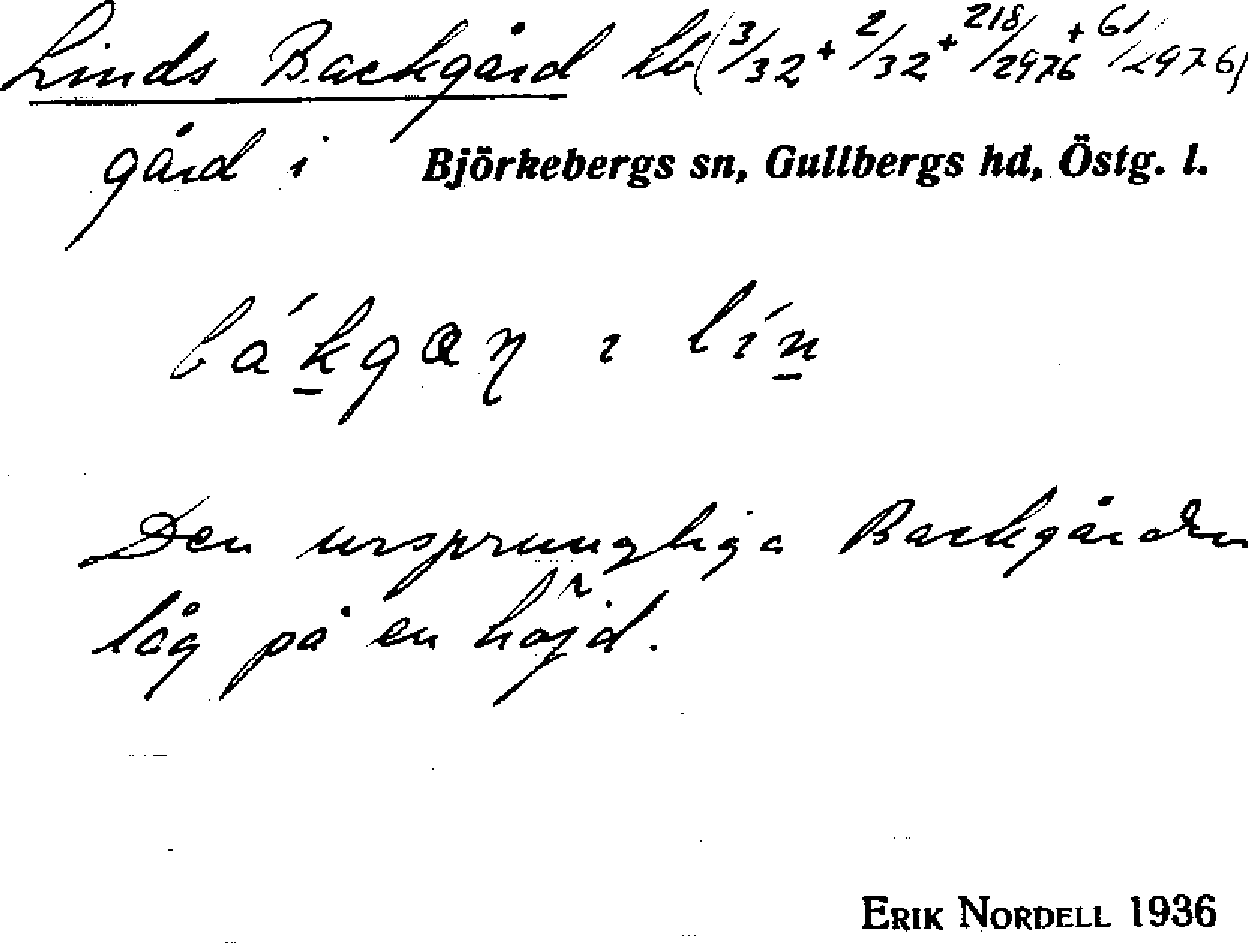 Linds Backgård hb (3/32 + 2/32 + 218/2976 + 61/2976)
gård i Björkebergs sn, Gullbergs hd, Östg. l.
i
Den ursprungliga Backgården
låg på en höjd.
ERIK NORDELL 1936